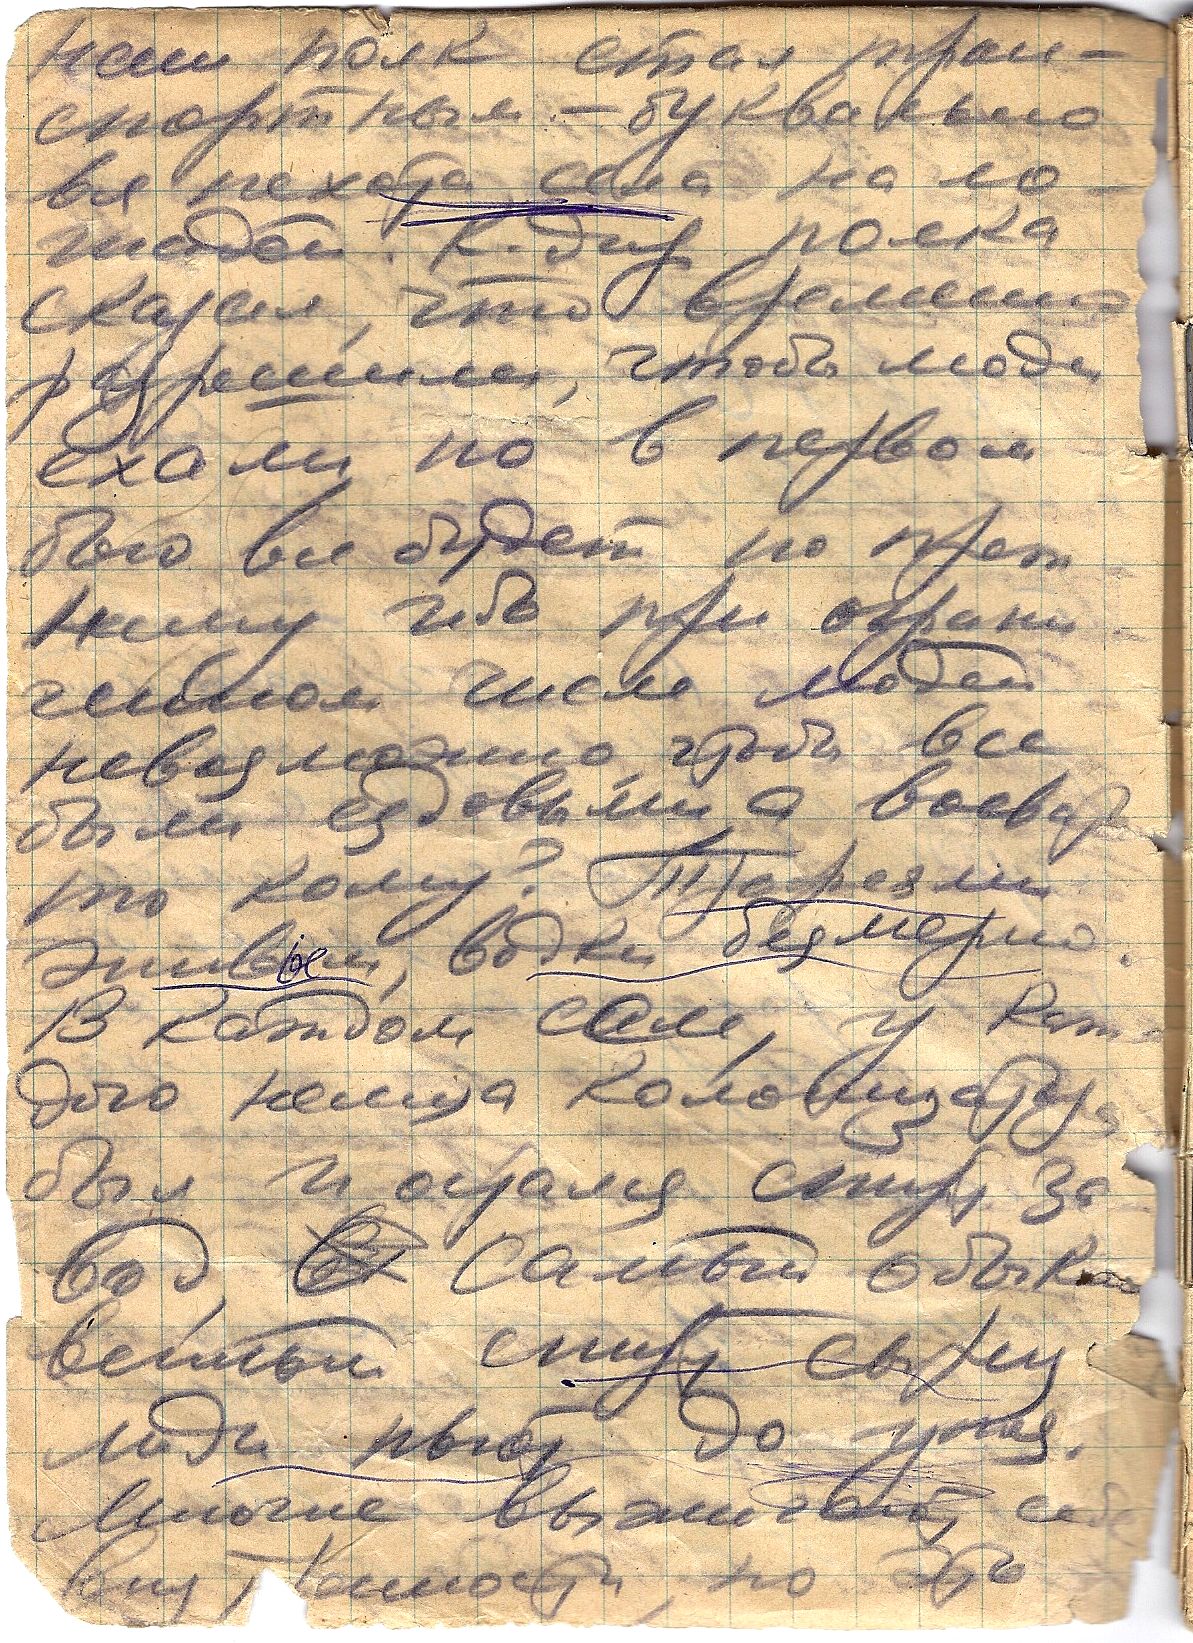 наш полк стал тран-
спортным - буквально
вся пехота села на ло
шадей. К-дир полка
сказал, что временно
разрешили, чтобы люди
ехали но в первом
бою все будет по преж
нему ибо при ограни
ченном числе людей
невозможно, чтобы все
были ездовыми а воевать
то кому? Трофеями
живем, водки безмерно.
В каждом селе, у каж-
дого немца колонизатора
был и остался спирт за
вод, самый обыкно
венный спирт сырец
люди пьют до упоя.
Многие выжигают себе
внутренности, но это